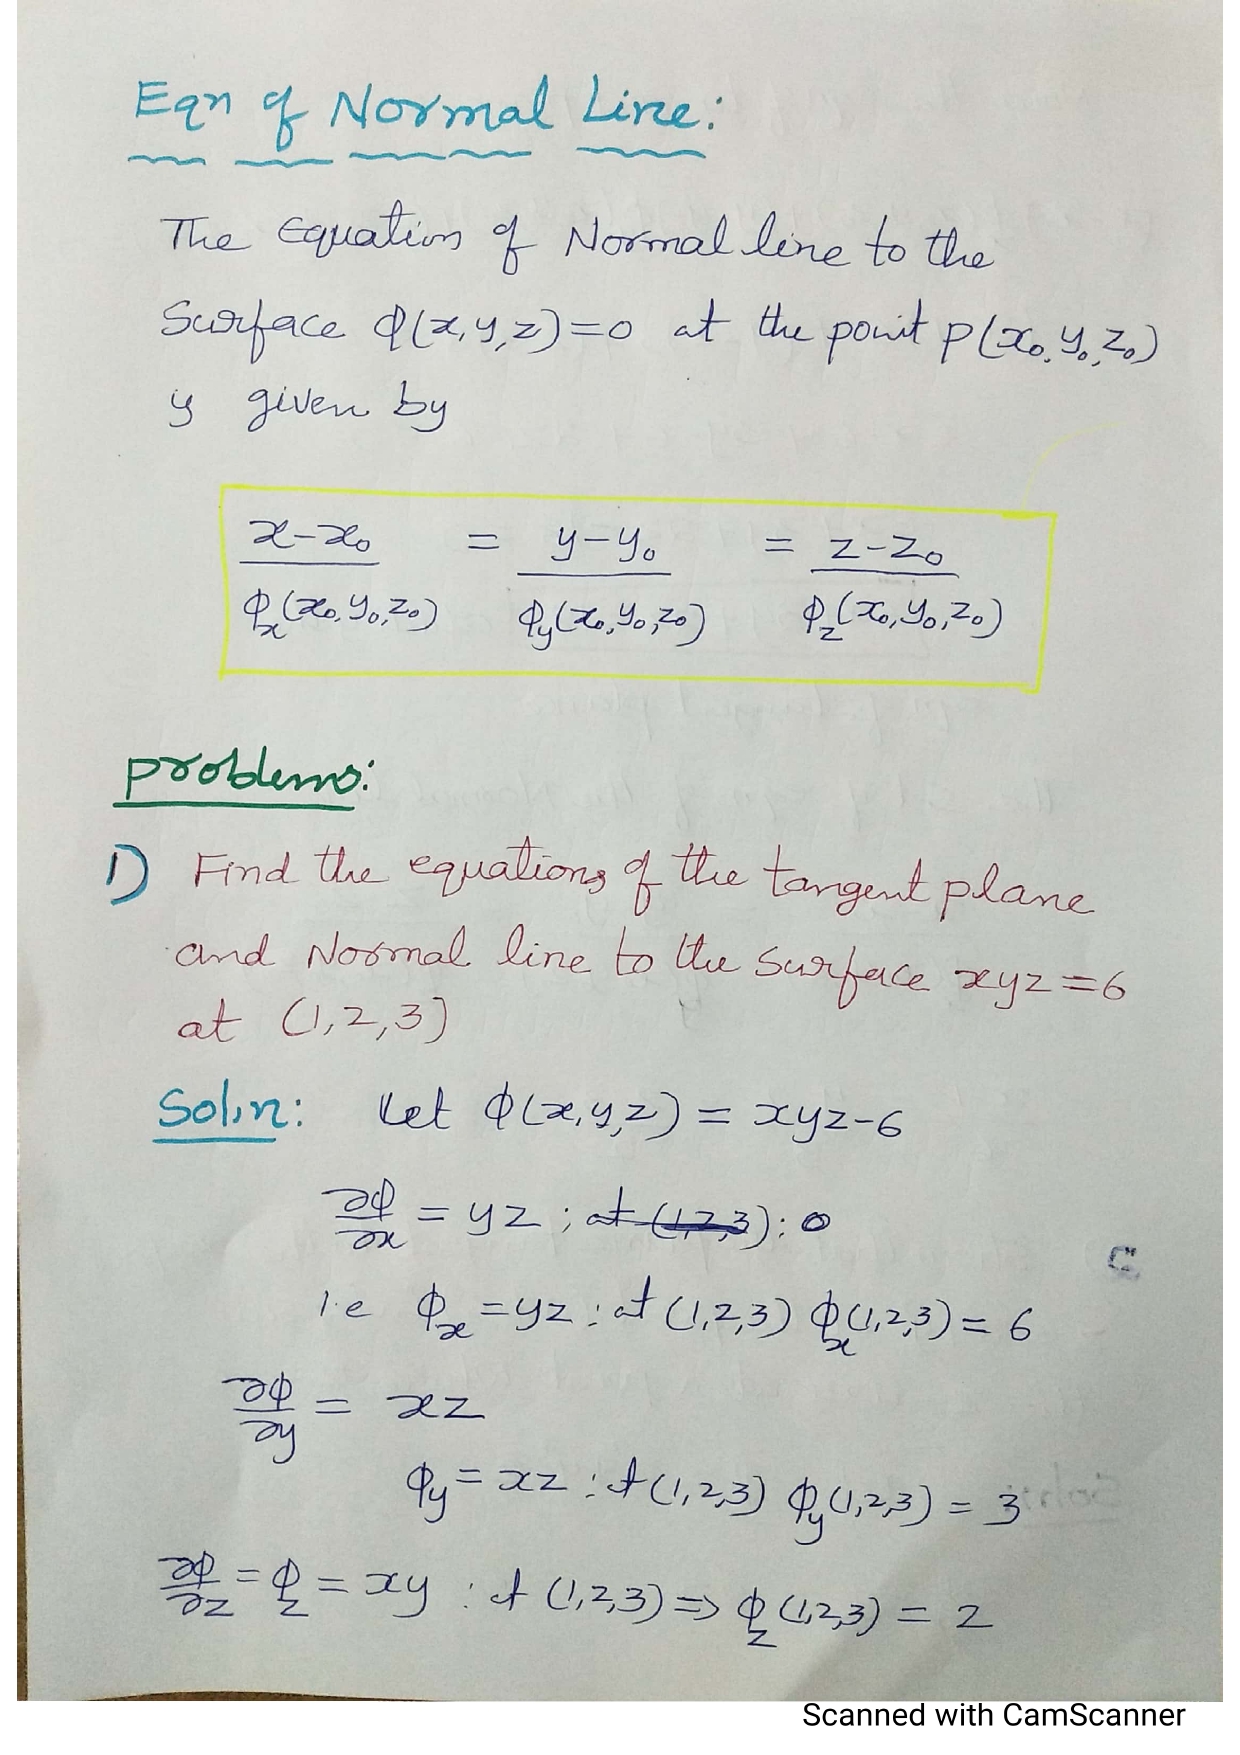 Eqn of Normal Line:
The Equation of Normal line to the
Surface ϕ(x,y,z)=0 at the point P(x₀,y₀,z₀)
is given by
x-x₀ / ϕₓ(x₀,y₀,z₀) = y-y₀ / ϕ_y(x₀,y₀,z₀) = z-z₀ / ϕ_z(x₀,y₀,z₀)
problems:
1) Find the equations of the tangent plane
and Normal line to the Surface xyz=6
at (1,2,3)
Sol.n: Let ϕ(x,y,z) = xyz-6
∂ϕ/∂x = yz ; at (1,2,3) : 0
i.e ϕₓ = yz : at (1,2,3) ϕₓ(1,2,3) = 6
∂ϕ/∂y = xz
ϕ_y = xz : at (1,2,3) ϕ_y(1,2,3) = 3
∂ϕ/∂z = ϕ_z = xy : at (1,2,3) ⇒ ϕ_z(1,2,3) = 2
Scanned with CamScanner